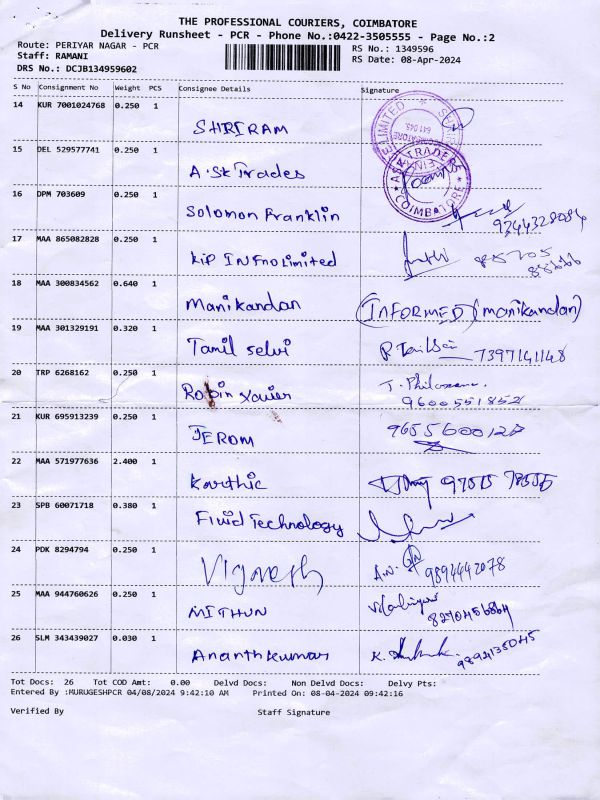 THE PROFESSIONAL COURIERS, COIMBATORE
Delivery Runsheet - PCR - Phone No.:0422-3505555 - Page No.:2
Route: PERIYAR NAGAR - PCR
RS No.: 1349596
Staff: RAMANI
RS Date: 08-Apr-2024
DRS No.: DCJB134959602
S No Consignment No Weight PCS Consignee Details Signature
14 KUR 7001024768 0.250 1 SHRIRAM
15 DEL 529577741 0.250 1 A.SK Trades
TRADERS
COIMBATORE
16 DPM 703609 0.250 1 Solomon Franklin
9344328084
17 MAA 865082828 0.250 1 Kip INFno Limited
18 MAA 300834562 0.640 1 Manikandan INFORMED (manikandan)
19 MAA 301329191 0.320 1 Tamil selvi 7397141148
20 TRP 6268162 0.250 1 Robin Xavier
9600551852
21 KUR 695913239 0.250 1 JEROM 9655600127
22 MAA 571977636 2.400 1 Karthic
23 SPB 60071718 0.380 1 Fluid Technology
24 PDK 8294794 0.250 1 Vignesh A.N. 9894442078
25 MAA 944760626 0.250 1 MITHUN
26 SLM 343439027 0.030 1 Ananthkumar K.
Tot Docs: 26 Tot COD Amt: 0.00 Delvd Docs: Non Delvd Docs: Delvy Pts:
Entered By :MURUGESHPCR 04/08/2024 9:42:10 AM Printed On: 08-04-2024 09:42:16
Verified By Staff Signature